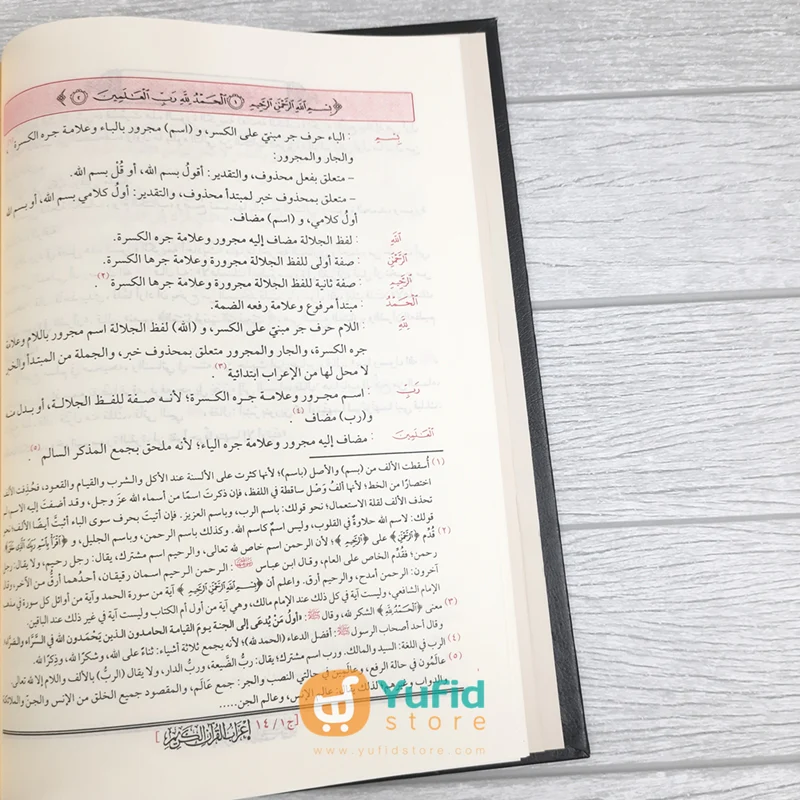 ﴿ بِسْمِ اللَّهِ الرَّحْمَٰنِ الرَّحِيمِ ١ الْحَمْدُ لِلَّهِ رَبِّ الْعَالَمِينَ ٢ ﴾
بِسْمِ : الباء حرف جر مبنيّ على الكسر، و (اسم) مجرور بالباء وعلامة جره الكسرة
والجار والمجرور:
– متعلق بفعل محذوف، والتقدير: أقولُ بسم الله، أو قُلْ بسم الله.
– متعلق بمحذوف خبر لمبتدأ محذوف، والتقدير: أولُ كلامي بسم الله، أو بسم الله
أولُ كلامي، و (اسم) مضاف.
اللَّهِ : لفظ الجلالة مضاف إليه مجرور وعلامة جره الكسرة.
الرَّحْمَٰنِ : صفة أولى للفظ الجلالة مجرورة وعلامة جرها الكسرة.
الرَّحِيمِ : صفة ثانية للفظ الجلالة مجرورة وعلامة جرها الكسرة (٢).
الْحَمْدُ : مبتدأ مرفوع وعلامة رفعه الضمة.
لِلَّهِ : اللام حرف جر مبنيّ على الكسر، و (الله) لفظ الجلالة اسم مجرور باللام وعلامة
جره الكسرة، والجار والمجرور متعلق بمحذوف خبر، والجملة من المبتدأ والخبر
لا محل لها من الإعراب ابتدائية (٣).
رَبِّ : اسم مجرور وعلامة جره الكسرة؛ لأنه صفة للفظ الجلالة، أو بدل
و(رب) مضاف (٤).
الْعَالَمِينَ : مضاف إليه مجرور وعلامة جره الياء؛ لأنه ملحق بجمع المذكر السالم (٥).
(١) أُسقطت الألف من (بسم) والأصل (باسم)؛ لأنها كثرت على الألسنة عند الأكل والشرب والقيام والقعود، فحُذِفت الألف
اختصارًا من الخط؛ لأنها ألفُ وَصْل ساقطة في اللفظ، فإن ذكرتَ اسمًا من أسماء الله عزّ وجل، وقد أضفتَ إليه الاسم
تحذف الألف لقلة الاستعمال؛ نحو قولك: باسم الرب، وباسم العزيز. فإن أتيتَ بحرف سوى الباء أثبتَّ أيضًا الألف؛ نحو
قولك: لاسم الله حلاوةٌ في القلوب، وليس اسمٌ كاسم الله. وكذلك باسم الرحمن، وباسم الجليل، و ﴿اقْرَأْ بِاسْمِ رَبِّكَ الَّذِي خَلَقَ﴾
(٢) قُدّم ﴿الرَّحْمَٰنِ﴾ على ﴿الرَّحِيمِ﴾؛ لأن الرحمن اسم خاص لله تعالى، والرحيم اسم مشترك، يقال: رجل رحيم، ولا يقال: رجل
رحمن؛ فقُدِّم الخاص على العام، وقال ابن عباس: الرحمن الرحيم اسمان رقيقان، أحدُهما أرقُّ من الآخر، وقال
آخرون: الرحمن أمدح، والرحيم أرق. واعلم أن ﴿بِسْمِ اللَّهِ الرَّحْمَٰنِ الرَّحِيمِ﴾ آية من سورة الحمد وآية من أوائل كل سورة في مذهب
الإمام الشافعي، وليست آية في كل ذلك عند الإمام مالك، وهي آية من أول أم الكتاب وليست آية في غير ذلك عند الباقين.
(٣) معنى ﴿الْحَمْدُ لِلَّهِ﴾ الشكر لله، وقال ﷺ: «أولُ مَنْ يُدعَى إلى الجنة يومَ القيامة الحامدون الذين يَحْمَدون الله في السَّرَّاء والضرَّاء
وقال أحد أصحاب الرسول ﷺ: أفضل الدعاء (الحمد لله)؛ لأنه يجمع ثلاثة أشياء: ثناءً على الله، وشكرًا لله، وذِكرًا لله.
(٤) الرب في اللغة: السيد والمالك. ورب اسم مشترك؛ يقال: ربُّ الضَّيعة، وربُّ الدار، ولا يقال (الربُّ) بالألف واللام إلا لله تعالى
(٥) عالَمُون في حالة الرفع، وعالَمِين في حالتي النصب والجر: جمع عالَم، والمقصود جميع الخلق من الإنس والجنّ والملائكة
والدواب عالم الإنس، وعالم الجن.....
[ج١/ ١٤ إعراب القرآن الكريم]
Yufid
store
www.yufidstore.com